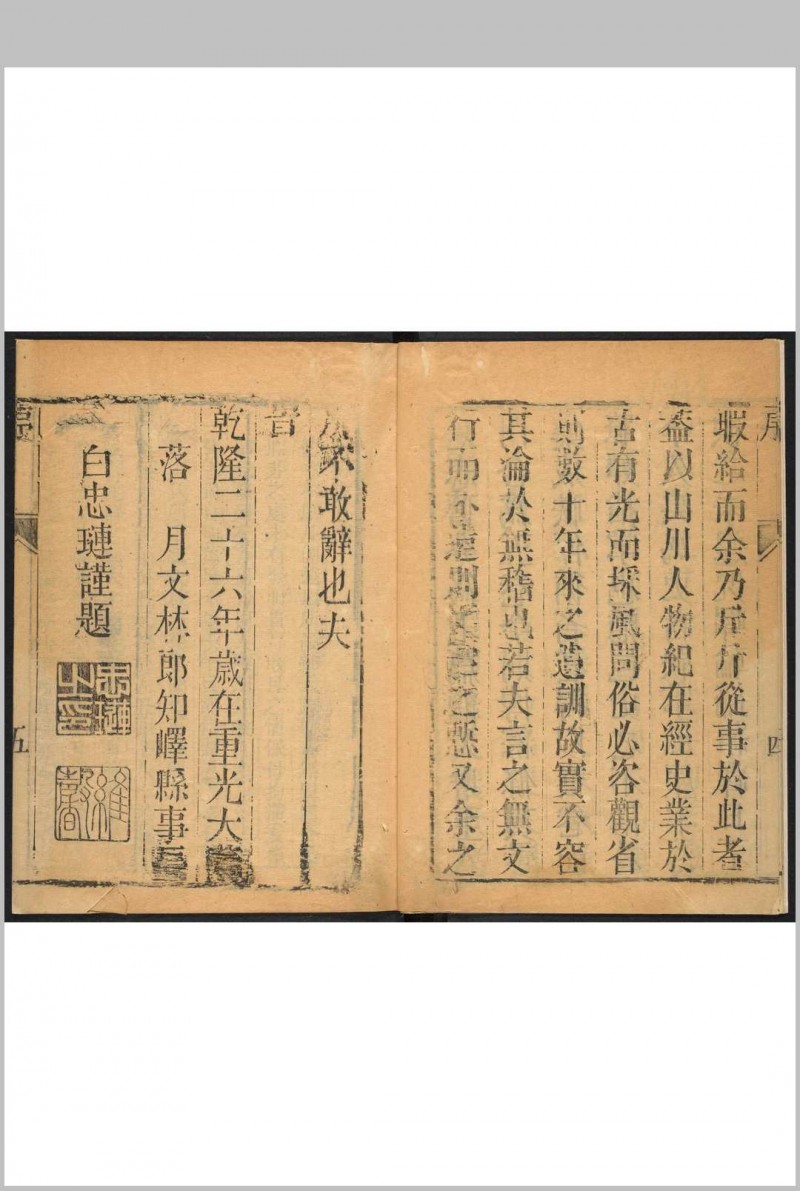 序
暇給而余乃斤斤從事於此者
蓋以山川人物紀在經史業於
古有光而採風問俗必咨觀省
則數十年來之遺訓故實不容
其淪於無稽也若夫言之無文
行而不遠則 之惩又余之
四
不敢辭也夫
旹
乾隆二十六年歲在重光大
落 月文林郎知嶧縣事
白忠璉謹題
忠璉之印
五